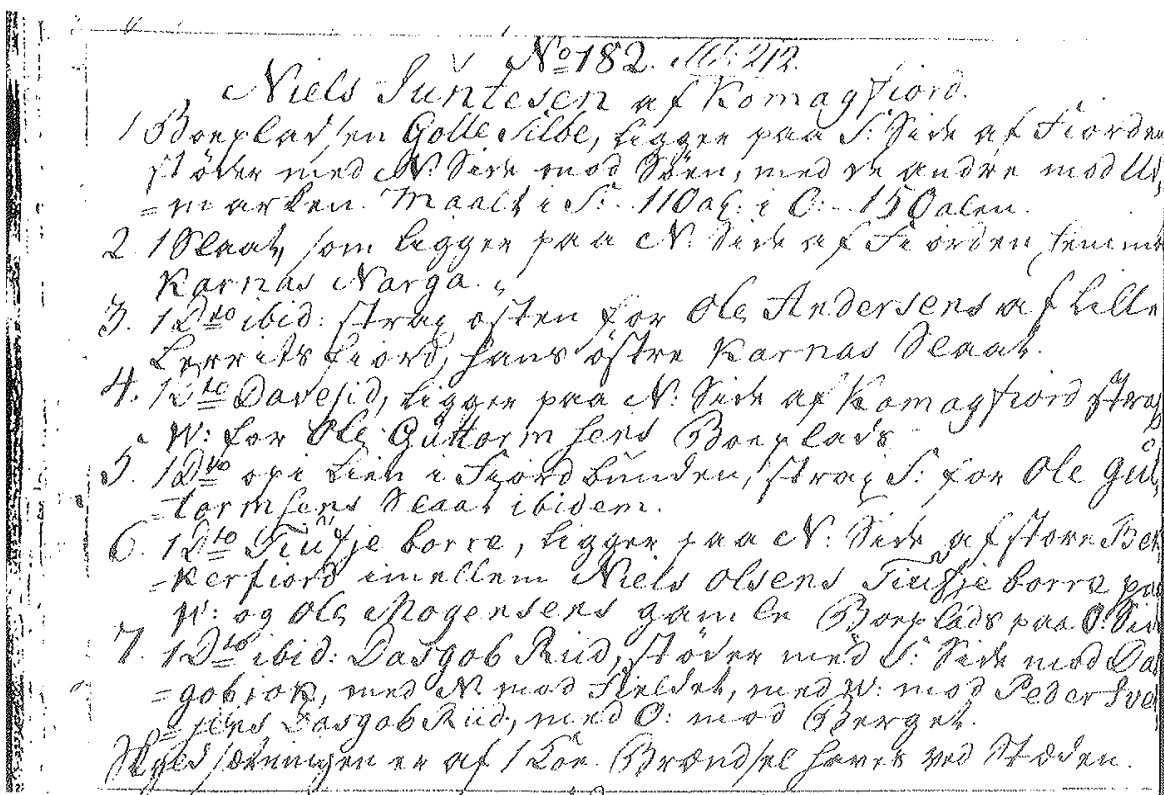 No 182. M: 212.
Niels Suntesen af Komagfiord.
1 Boepladsen Golle Silbe, ligger paa S: Side af Fiorden
støder med N: Side mod Søen, med de andre mod Ud,
=marken. Maalt i S: - 110 al: i O: - 150 alen.
2. 1 Slaat, som ligger paa N: Side af Fiorden,
Karnas Narga.
3. 1 Dto ibid: strax østen for Ole Andersens af Lille
Lerritsfiord, hans østre Karnas Slaat.
4. 1 Dto Davesid, ligger paa N: Side af Komagfiord strax
W: for Ole Guttormsens Boeplads
5. 1 Dto op i Lien i Fiordbunden, strax S: for Ole Gut,
=tormsens Slaat ibidem.
6. 1 Dto Tiufje borre, ligger paa N: Side af store Bek
=kerfiord imellem Niels Olsens Tiufje borre paa
W: og Ole Mogensens gamle Boeplads paa O: Side
7. 1 Dto ibid: Dasgob Riid, støder med S: Side mod Das
=gobiok, med N mod Fieldet, med W: mod Peder Sve
=sens Dasgob Riid, med O: mod Berget.
Skyldsætningen er af 1 Koe. Brændsel haves ved Stæden.